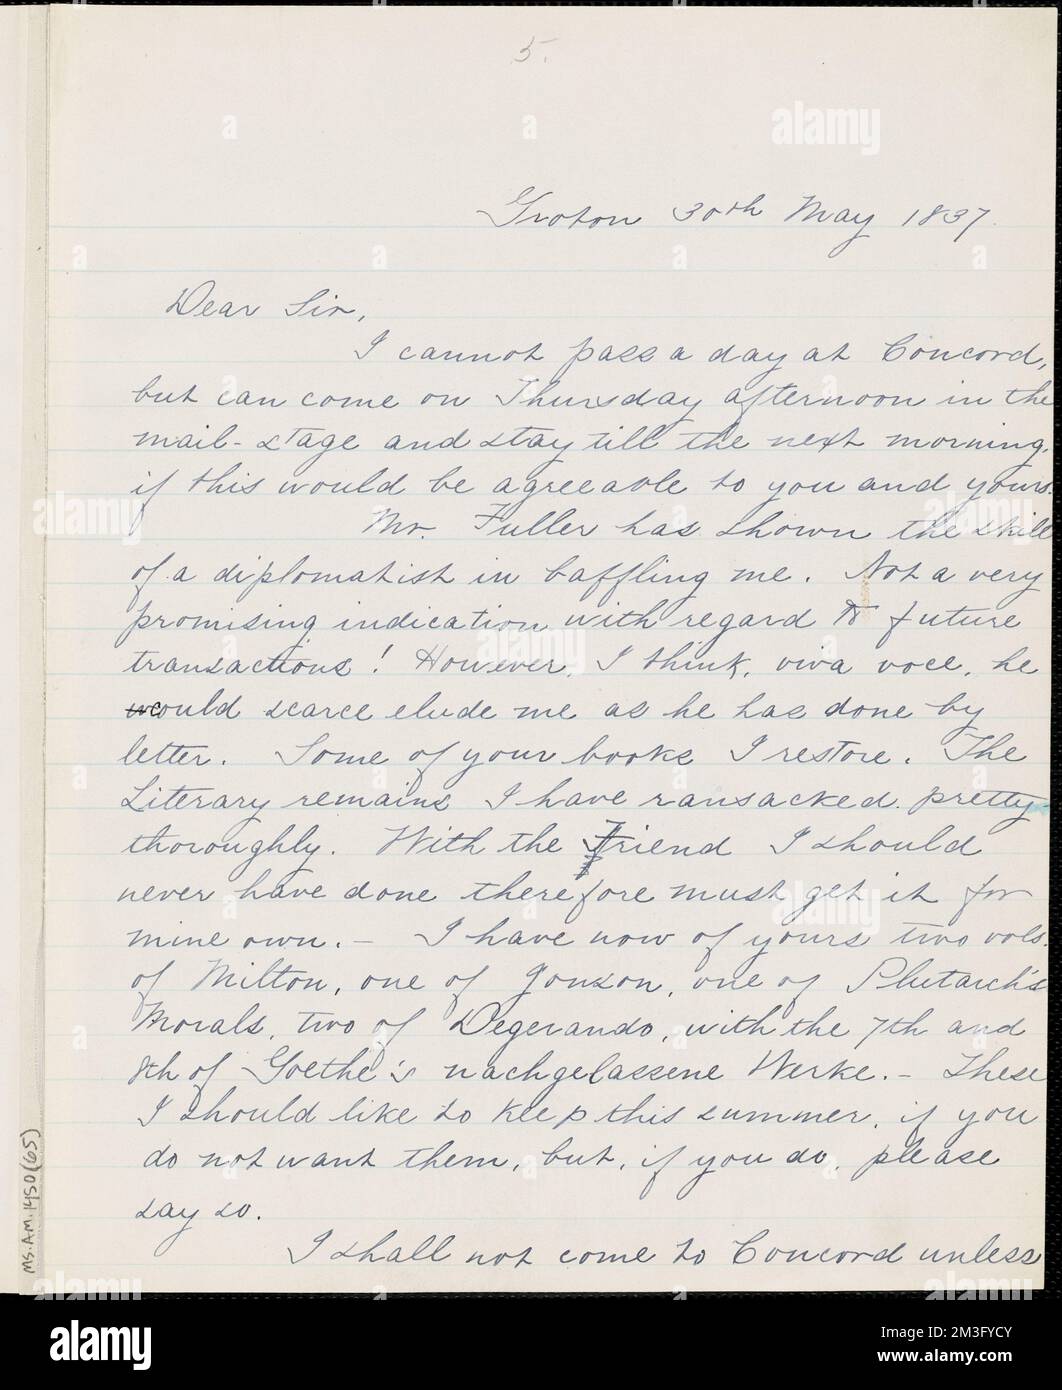 5.
Groton 30th May 1837.
Dear Sir,
I cannot pass a day at Concord,
but can come on Thursday afternoon in the
mail-stage and stay till the next morning,
if this would be agreeable to you and yours.
Mr. Fuller has shown the skill
of a diplomatist in baffling me. Not a very
promising indication with regard to future
transactions! However, I think, viva voce, he
would scarce elude me as he has done by
letter. Some of your books I restore. The
Literary remains I have ransacked pretty
thoroughly. With the Friend I should
never have done therefore must get it for
mine own. — I have now of yours two vols.
of Milton, one of Jonson, one of Plutarch's
Morals, two of Degerando, with the 7th and
8th of Goethe's nachgelassene Werke. — These
I should like to keep this summer, if you
do not want them, but, if you do, please
say so.
I shall not come to Concord unless
MS.AM.1450(65)
alamy
Image ID: 2M3FYCY
www.alamy.com